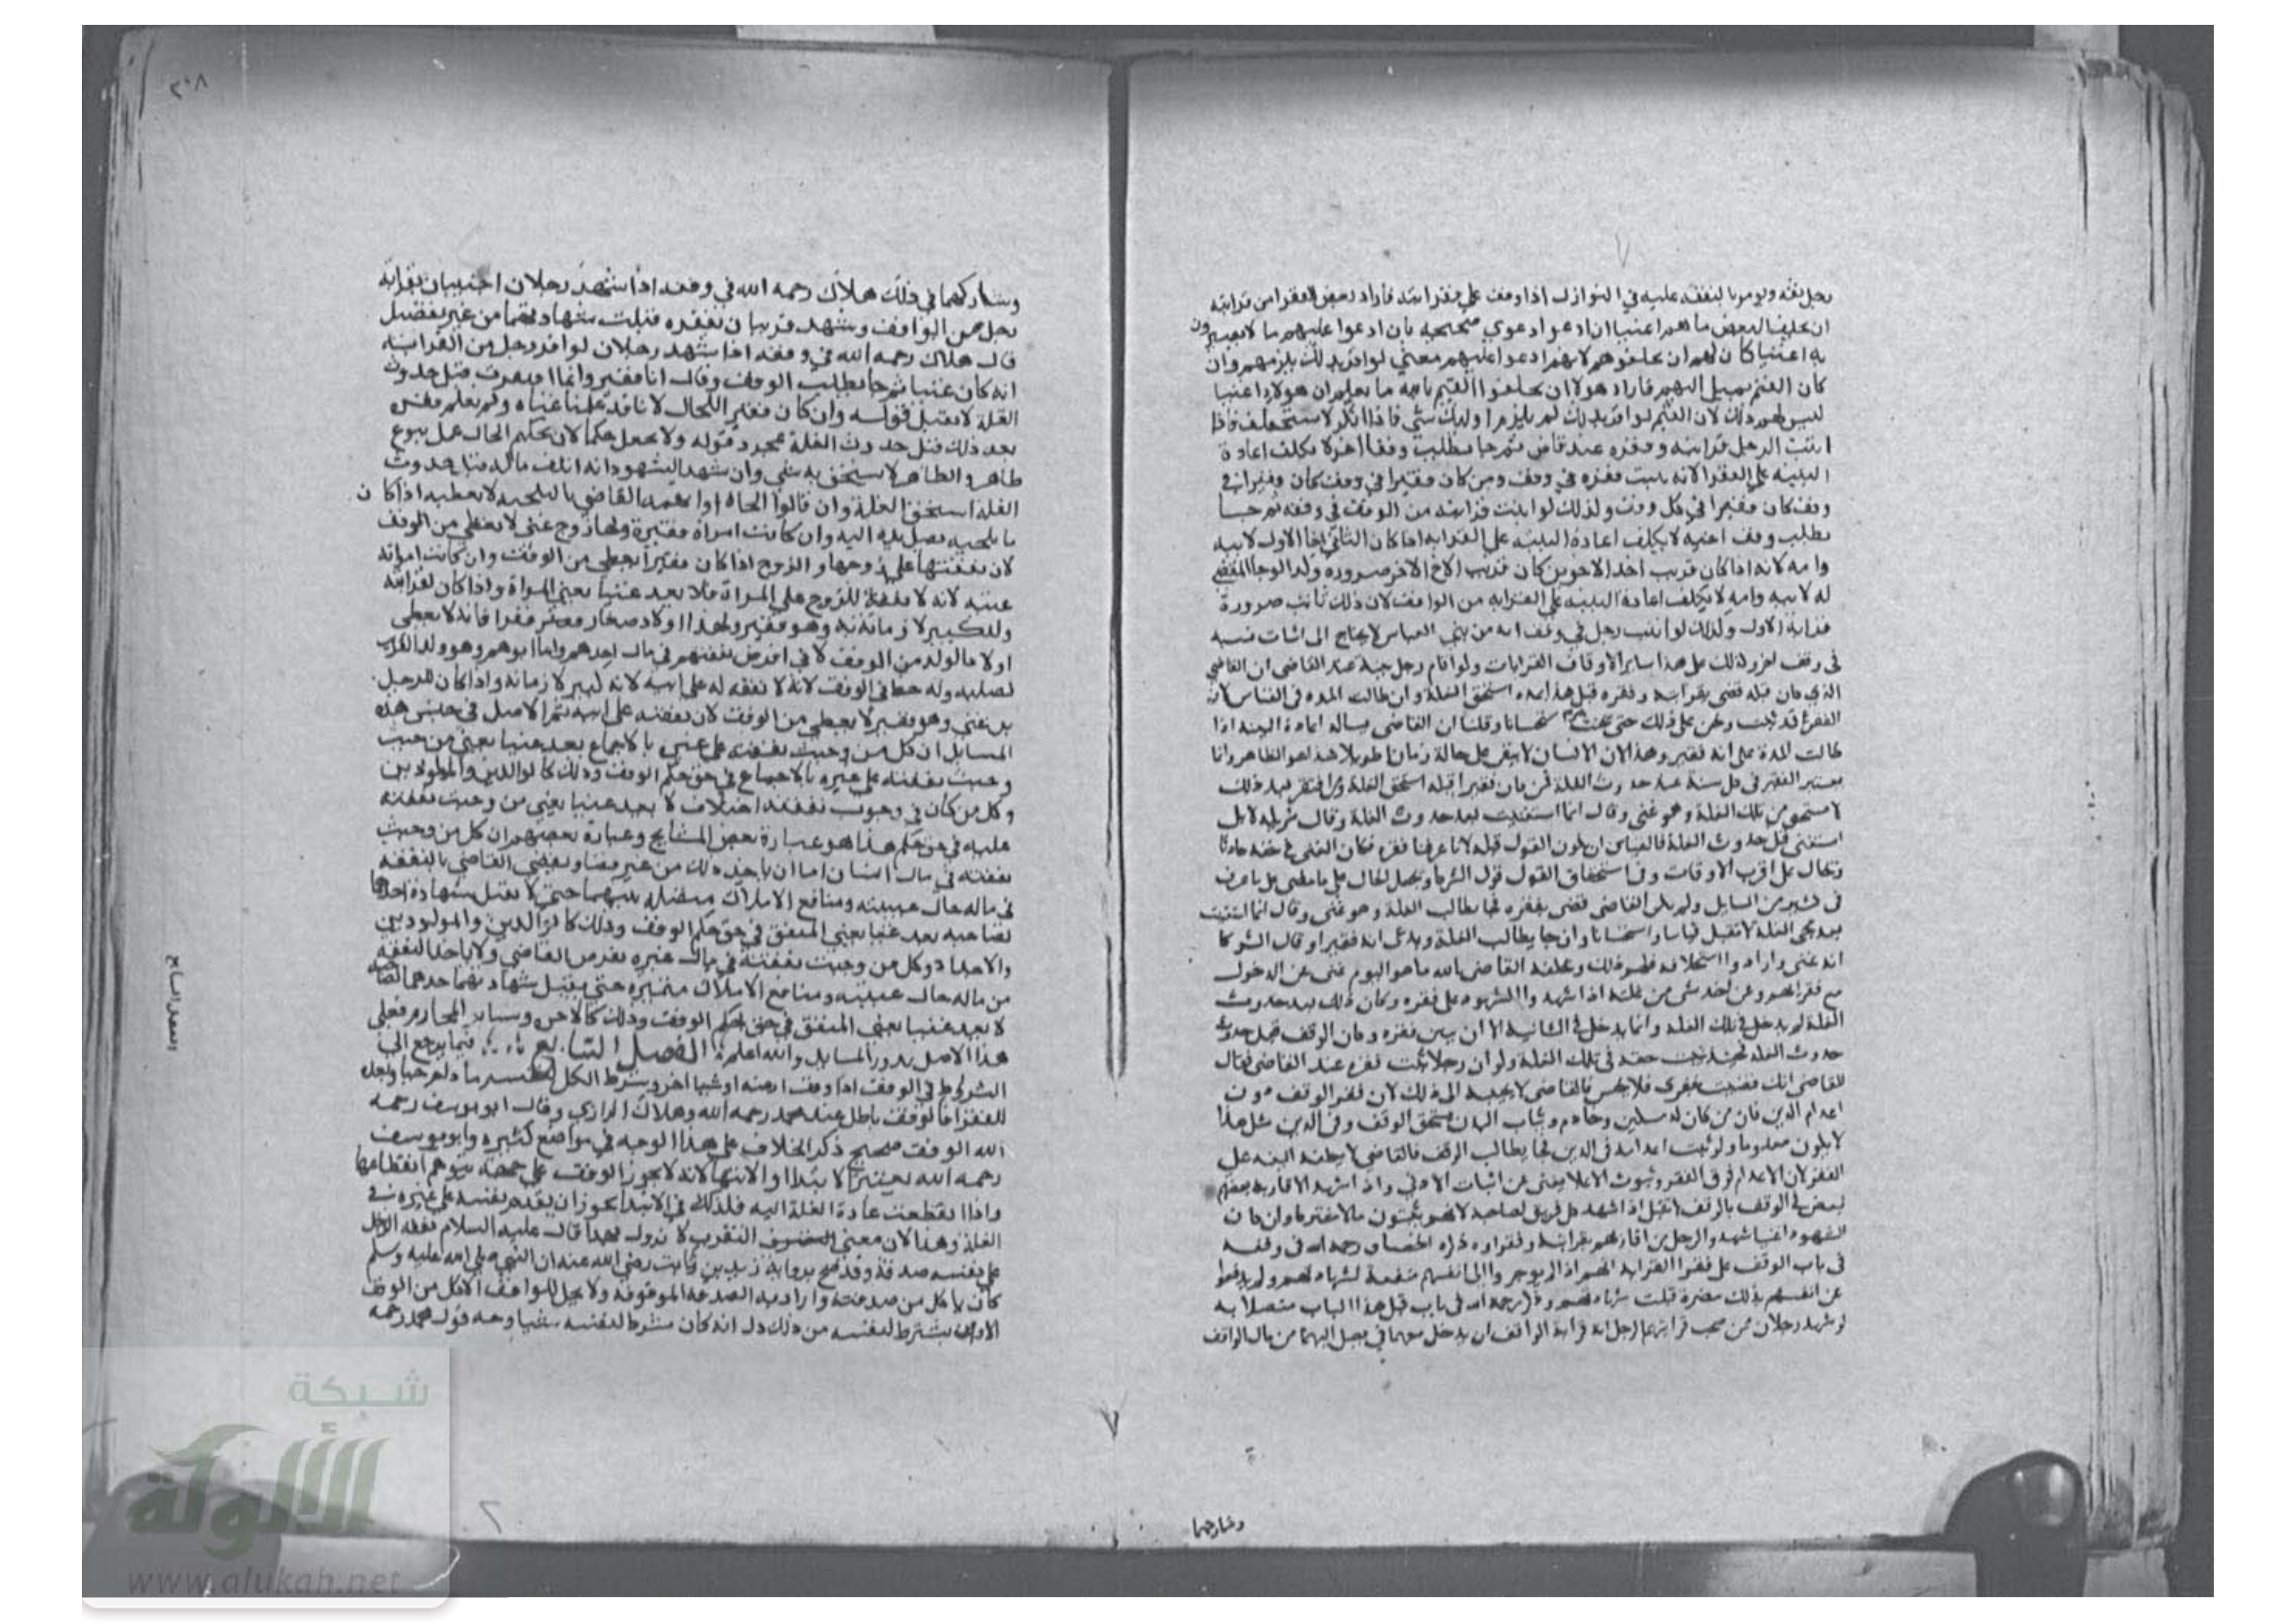 رجل نفقه ويومر بالنفقه عليه في النوازل اذا وقف على فقرا قرابته فاراد بعض الفقرا من قرابته
ان يحلف البعض ما هم اغنيا ان ادعوا دعوي صحيحه بان ادعوا عليهم ما لا يصيرون
به اغنيا كان لهم ان يحلفوهم لانهم ادعوا عليهم معني لو اقروا بذلك يلزمهم وان
كان القيم يميل اليهم فاراد هولا ان يحلفوا القيم بالله ما يعلم ان هولا اغنيا
ليس لهم ذلك لان القيم لو اقر بذلك لم يلزم اوليك شي فاذا انكر لا يستحلف فاذا
اثبت الرجل قرابته وفقره عند قاض ثم جا يطلب وقفا اخر لا يكلف اعادة
البينه على الفقر لانه يثبت فقره في وقف ومن كان فقيرا في وقف كان فقيرا في
وقف كان فقيرا في كل وقف ولذلك لو اثبت قرابته من الواقف في وقفه ثم جا
يطلب وقف اخيه لا يكلف اعادة البينه على القرابه اذا كان الثاني اخا الاول لابيه
وامه لانه اذا كان قريب احد الاخوين كان قريب الاخ الاخر ضروره ولذا لو جا المقضي
له لابيه وامه لا يكلف اعادة البينه على القرابه من الواقف لان ذلك ثابت ضرورة
قرابة الاول ولذلك لو اثبت رجل في وقف انه من بني العباس لا يحتاج الى اثبات نسبه
في وقف اخر لذلك على هذا ساير الاوقاف القرابات ولو اقام رجل بينة عند القاضى ان القاضي
الذي كان قبله قضى بقرابته وفقره قبل هذا بمده استحق الغلة وان طالت المده في القياس لان
الفقر قد ثبت ونحن على ذلك حتى يحدث استحسانا وقلنا ان القاضى يساله اعادة البينه اذا
طالت المدة على انه فقير وهذا لان الانسان لا يبقى على حالة زمانا طويلا هذا هو الظاهر وانا
يعتبر الفقير في كل سنة عند حدوث الغلة فمن كان فقيرا قبله استحق الغلة ومن افتقر بعد ذلك
لا يستحق من تلك الغلة وهو غنى وقال انما استغنيت بعد حدوث الغلة وقال شريكه لا بل
استغنى قبل حدوث الغلة فالقياس ان يكون القول قوله لانا عرفنا فقره فكان الغنى في حقه حادثا
ويحال على اقرب الاوقات وفي استحقاق القول قول الشركا ويجعل الحال على ما مضى على ما عرف
في كثير من المسايل ولو لم يكن القاضى قضى بفقره فجا يطالب الغلة وهو غنى وقال انما استغنيت
بعد مجى الغلة لا تقبل قياسا واستحسانا وان جا يطالب الغلة ويدعى انه فقير او قال الشركا
انه غنى وارادوا استحلافه فلهم ذلك ويحلفه القاضى بالله ما هو اليوم غنى عن الدخول
مع فقراهم وعن اخذ شي من غلته اذا شهد الشهود على فقره وكان ذلك بعد حدوث
الغلة لم يدخل في تلك الغلة وانما يدخل في الثانية الا ان يبين فقره وكان الوقف قبل حدوث
حدوث الغله فحينئذ يثبت حقه في تلك الغلة ولو ان رجلا يثبت فقره عند القاضى فقال
للقاضى انك قضيت بفقرى فلا يحبس فالقاضى لا يجيبه الى ذلك لان فقر الوقف دون
اعدام الدين فان من كان له مسكن وخادم وثياب البدن يستحق الوقف وفي الدين مثل هذا
لا يكون معدوما ولو ثبت اعدامه في الدين فجا يطالب الوقف فالقاضى لا يكلفه البينه على
الفقر لان الاعدام فوق الفقر وثبوت الاعلا يغنى عن اثبات الادني واذا شهد الاقارب بعضهم
لبعض في الوقف بالوقف لا تقبل اذا شهد كل فريق لصاحبه لانهم يثبتون مالا مشتركا وان كان
الشهود اغنيا شهدوا لرجل من اقاربهم بقرابته وفقره ذكره الخصاف رحمه الله في وقفه
في باب الوقف على فقرا القرابه انهم اذا لم يوجروا الى انفسهم منفعة بشهادتهم ولم يدفعوا
عن انفسهم بذلك مضرة قبلت شهادتهم وذكر رحمه الله في باب قبل هذا الباب متصلا به
لو شهد رجلان ممن صحت قرابتهما لرجل انه قرابة الواقف ان يدخل معهما في يصل اليهما من مال الواقف
وشاركهما
٢٠٨
وشاركهما في ذلك هلاك رحمه الله في وقفه اذا شهد رجلان اجنبيان بقرابة
رجل من الواقف وشهد قريبان بفقره قبلت شهادتهما من غير تفضيل
قال هلاك رحمه الله في وقفه اذا شهد رجلان لواحد رجل من القرابه
انه كان غنيا ثم جا يطلب الوقف وقال انا فقير وانما افتقرت قبل حدوث
الغلة لا يقبل قوله وان كان فقير اللحال لانا قد علمنا غناه ولم نعلم فقره
بعد ذلك قبل حدوث الغلة بمجرد قوله ولا يجعل حكما لان تحكيم الحال عمل بنوع
ظاهر والظاهر لا يستحق به شي وان شهد الشهود انه اتلف ماله قبل حدوث
الغلة استحق الغلة وان قالوا الجاه او اتهمه القاضي بالتلجيه لا يعطيه اذا كان
ما يلجيه يصل يده اليه وان كانت امراة فقيرة ولها زوج غني لا تعطي من الوقف
لان نفقتها على زوجها والزوج اذا كان فقيرا يعطي من الوقف وان كانت امراته
غنيه لانه لا نفقة للزوج على المراة فلا يعد غنيا بغني المراة واذا كان لقرابته
ولد كبير لا زمانة به وهو فقير ولهذا اولاد صغار فقرا فانه لا يعطى
اولاد الولد من الوقف لان افرض نفقتهم في مال جدهم واما ابوهم وهو ولد القريب
لصلبه وله حظ في الوقف لانه لا نفقه له على ابيه لانه كبير لا زمانه واذا كان للرجل
بن غني وهو فقير لا يعطي من الوقف لان نفقته على ابنه ثم الاصل في جنس هذه
المسايل ان كل من وجبت نفقته على غني بالاجماع يعد غنيا بغني من وجبت
وجبت نفقته على غيره بالاجماع في حق حكم الوقف وذلك كالوالدين والمولودين
وكل من كان في وجوب نفقته اختلاف لا يعد غنيا بغني من وجبت نفقته
عليه في حق حكم هذا هو عبارة بعض المشايخ وعبارة بعضهم ان كل من وجبت
نفقته في مال انسان اما ان ياخذ ذلك من غير قضا ويقضي القاضي بالنفقه
في ماله حال غيبته ومنافع الاملاك متصله بينهما حتى لا تقبل شهادة احدهما
لصاحبه يعد غنيا بغني المنفق في حق حكم الوقف وذلك كالوالدين والمولودين
والاجداد وكل من وجبت نفقته في مال غيره بفرض القاضي ولا ياخذ النفقه
من ماله حال غيبته ومنافع الاملاك متميزه حتى يقبل شهادتهما احدهما لصاحبه
لا يعد غنيا بغني المنفق في حق حكم الوقف وذلك كالاخ وساير المحارم فعلي
هذا الاصل يدور المسايل والله اعلم الفصل السابع فيما يرجع الي
الشروط في الوقف اذا وقف ارضه او شيا اخر وشرط الكل لنفسه ما دام حيا وبعده
للفقرا فالوقف باطل عند محمد رحمه الله وهلاك الرازي وقال ابو يوسف رحمه
الله الوقف صحيح ذكر الخلاف على هذا الوجه في مواضع كثيره وابو يوسف
رحمه الله يعتبر الابتدا والانتها لانه لا يجوز الوقف على جهة يتوهم انقطاعها
واذا انقطعت عادة الغلة اليه فلذلك في الابتدا يجوز ان يقدم نفسه على غيره في
الغلة وهذا لان معني التقرب لا يزول بهذا قال عليه السلام نفقه الرجل
علي نفسه صدقة وقد صح برواية زيد بن ثابت رضي الله عنه ان النبي صلى الله عليه وسلم
كان ياكل من صدقته وارادبه الصدقه الموقوفه ولا يحل للواقف الاكل من الوقف
الا ان يشترط لنفسه من ذلك دل انه كان شرط لنفسه شيا وجه قول محمد رحمه
الفصل السابع
شبكة
الألوكة
www.alukah.net